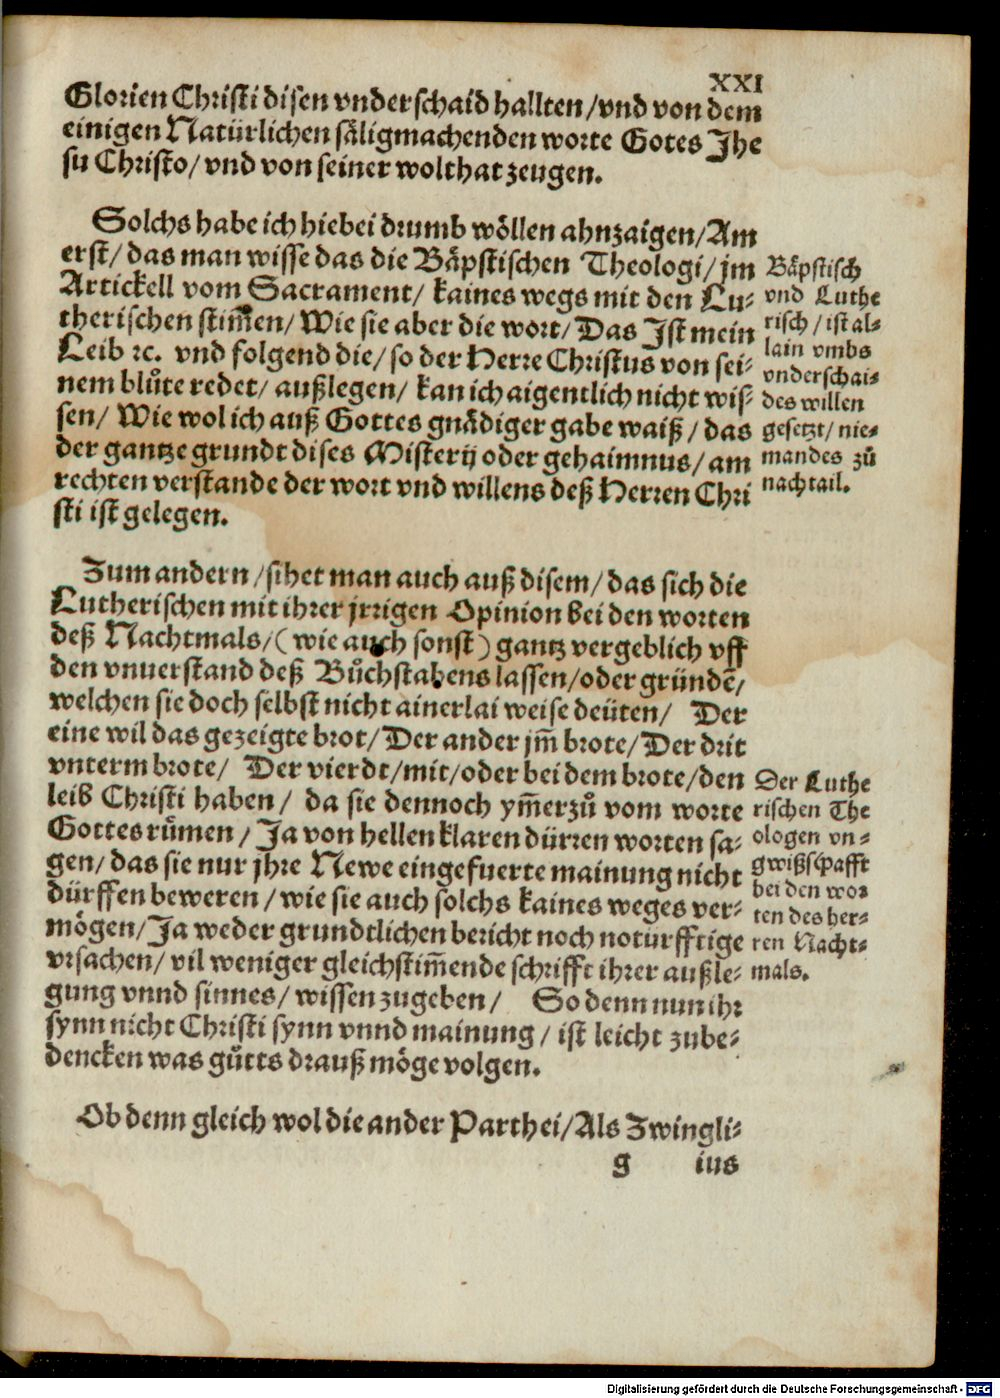 XXI
Glorien Christi disen vnderschaid hallten/vnd von dem
einigen Natürlichen säligmachenden worte Gotes Jhe
su Christo/ vnd von seiner wolthat zeugen.
Solchs habe ich hiebei drumb wöllen ahnzaigen/Am
erst/ das man wisse das die Bäpstischen Theologi/ jm
Artickell vom Sacrament/ kaines wegs mit den Lu⸗
therischen stim̃en/ Wie sie aber die wort/ Das Jst mein
Leib ꝛc. vnd folgend die/ so der Herre Christus von sei⸗
nem blůte redet/ außlegen/ kan ich aigentlich nicht wis⸗
sen/ Wie wol ich auß Gottes gnädiger gabe waiß/ das
der gantze grundt dises Misterij oder gehaimnus/ am
rechten verstande der wort vnd willens deß Herren Chri
sti ist gelegen.
Bäpstisch
vnd Luthe
risch/ ist al⸗
lain vmbs
vnderschai⸗
des willen
gesetzt/ nie⸗
mandes zů
nachtail.
Zum andern/ sihet man auch auß disem/ das sich die
Lutherischen mit ihrer jrrigen Opinion bei den worten
deß Nachtmals/( wie auch sonst) gantz vergeblich vff
den vnuerstand deß Bůchstabens lassen/oder gründẽ/
welchen sie doch selbst nicht ainerlai weise deüten/ Der
eine wil das gezeigte brot/ Der ander jm̃ brote/ Der drit
vnterm brote/ Der vierdt/mit/oder bei dem brote/den
leib Christi haben/ da sie dennoch ym̃erzů vom worte
Gottes rümen/ Ja von hellen klaren dürren worten sa⸗
gen/ das sie nur jhre Newe eingefuerte mainung nicht
dürffen beweren/ wie sie auch solchs kaines weges ver⸗
mögen/ Ja weder grundtlichen bericht noch noturfftige
vrsachen/ vil weniger gleichstim̃ende schrifft ihrer außle⸗
gung vnnd sinnes/ wissen zugeben/ So denn nun ihr
synn nicht Christi synn vnnd mainung/ ist leicht zube⸗
dencken was gůtts drauß möge volgen.
Der Luthe
rischen The
ologen vn⸗
gwißschafft
bei den wor
ten des her⸗
ren Nacht⸗
mals.
Ob denn gleich wol die ander Parthei/Als Zwingli⸗
g ius
Digitalisierung gefördert durch die Deutsche Forschungsgemeinschaft - DFG